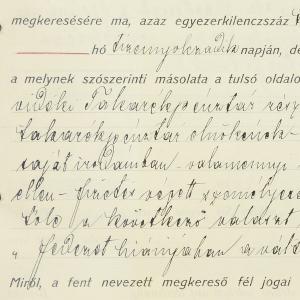 megkeresésére ma, azaz egyezerkilenczszáz
hó tizennyolczadik napján, de
a melynek szószerinti másolata a tulsó oldalo
vidéki Takarékpénztár rész
takarékpénztár elnökének
saját irodámban - valamennyi
ellen - fizetés végett személyese
tőle a következő választ
„ fedezet hiányában a vált
Miről, a fent nevezett megkereső fél jogai